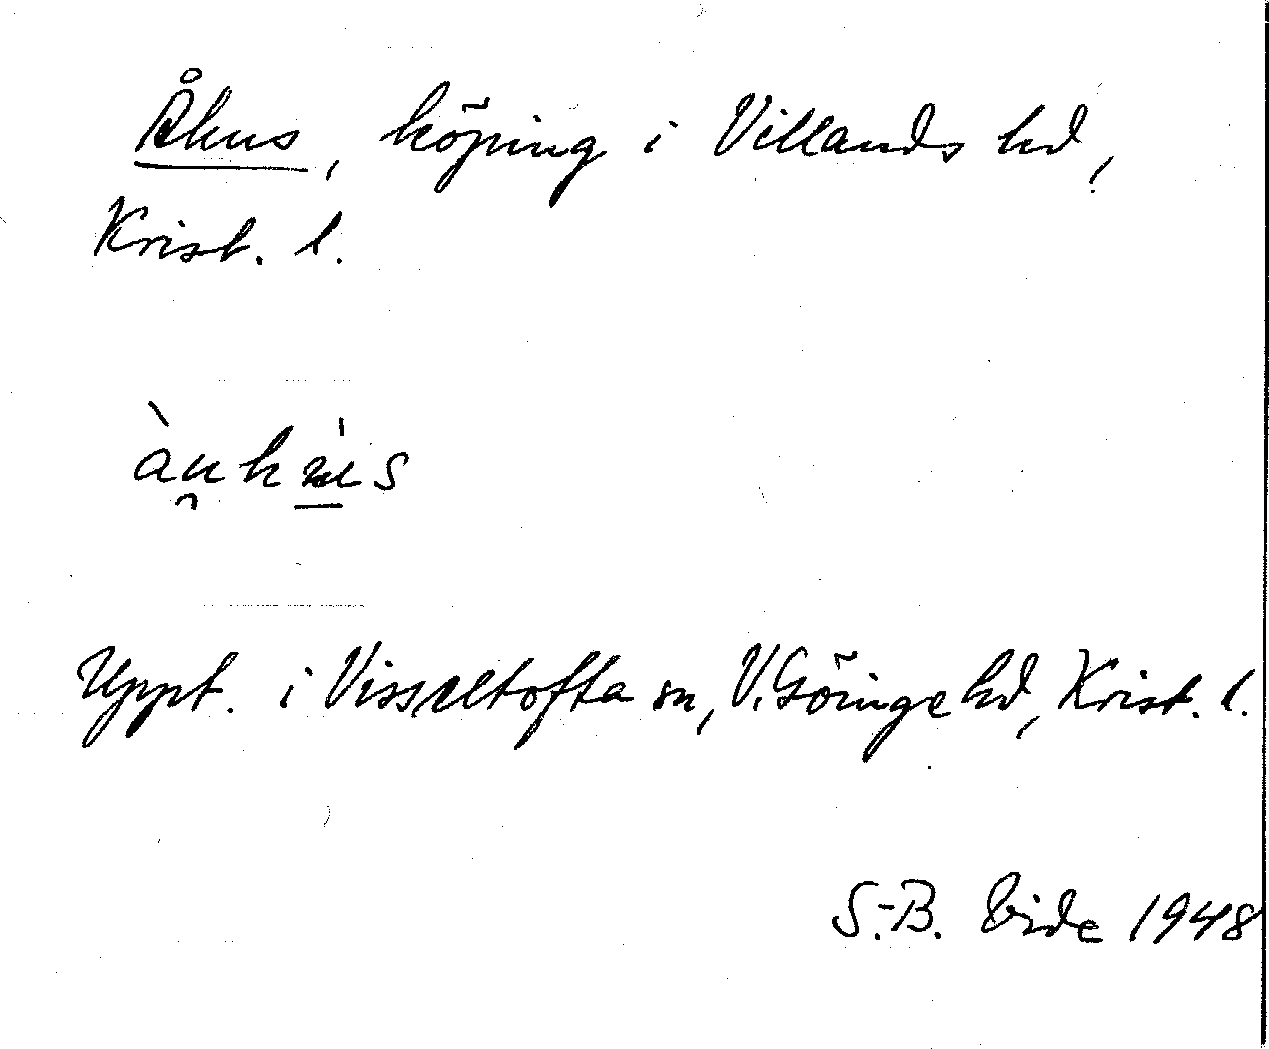 Åhus, köping i Villands hd,
Krist. l.
Uppt. i Visseltofta sn, V. Göinge hd, Krist. l.
S.-B. Vide 1948